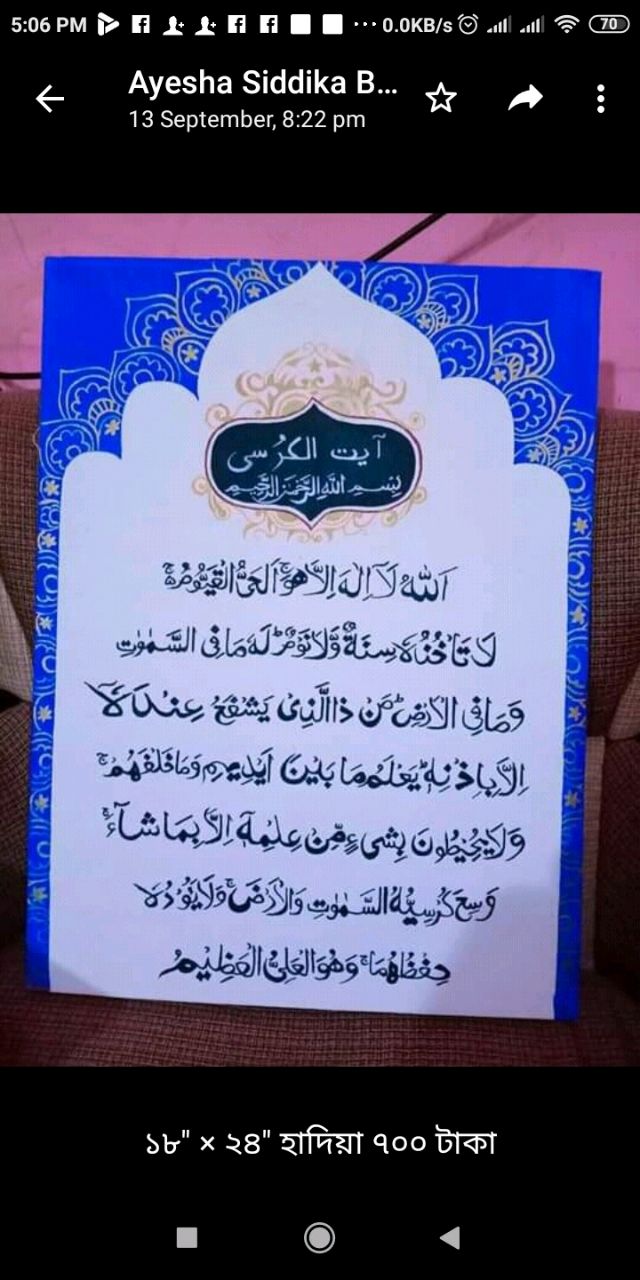 5:06 PM ... 0.0KB/s 70
Ayesha Siddika B...
13 September, 8:22 pm
آيت الكرسى
بِسْمِ اللهِ الرَّحْمٰنِ الرَّحِيْمِ
اَللهُ لَآ اِلٰهَ اِلَّا هُوَۚ اَلْحَىُّ الْقَيُّوْمُ ۚ
لَا تَاْخُذُهٗ سِنَةٌ وَّلَا نَوْمٌ ؕ لَهٗ مَا فِى السَّمٰوٰتِ
وَمَا فِى الْاَرْضِ ؕ مَنْ ذَا الَّذِىْ يَشْفَعُ عِنْدَهٗ
اِلَّا بِاِذْنِهٖ ؕ يَعْلَمُ مَا بَيْنَ اَيْدِيْهِمْ وَمَا خَلْفَهُمْ ۚ
وَلَا يُحِيْطُوْنَ بِشَىْءٍ مِّنْ عِلْمِهٖٓ اِلَّا بِمَا شَآءَ ۚ
وَسِعَ كُرْسِيُّهُ السَّمٰوٰتِ وَالْاَرْضَ ۚ وَلَا يَئُوْدُهٗ
حِفْظُهُمَا ۚ وَهُوَ الْعَلِىُّ الْعَظِيْمُ
১৮" × ২৪" হাদিয়া ৭০০ টাকা